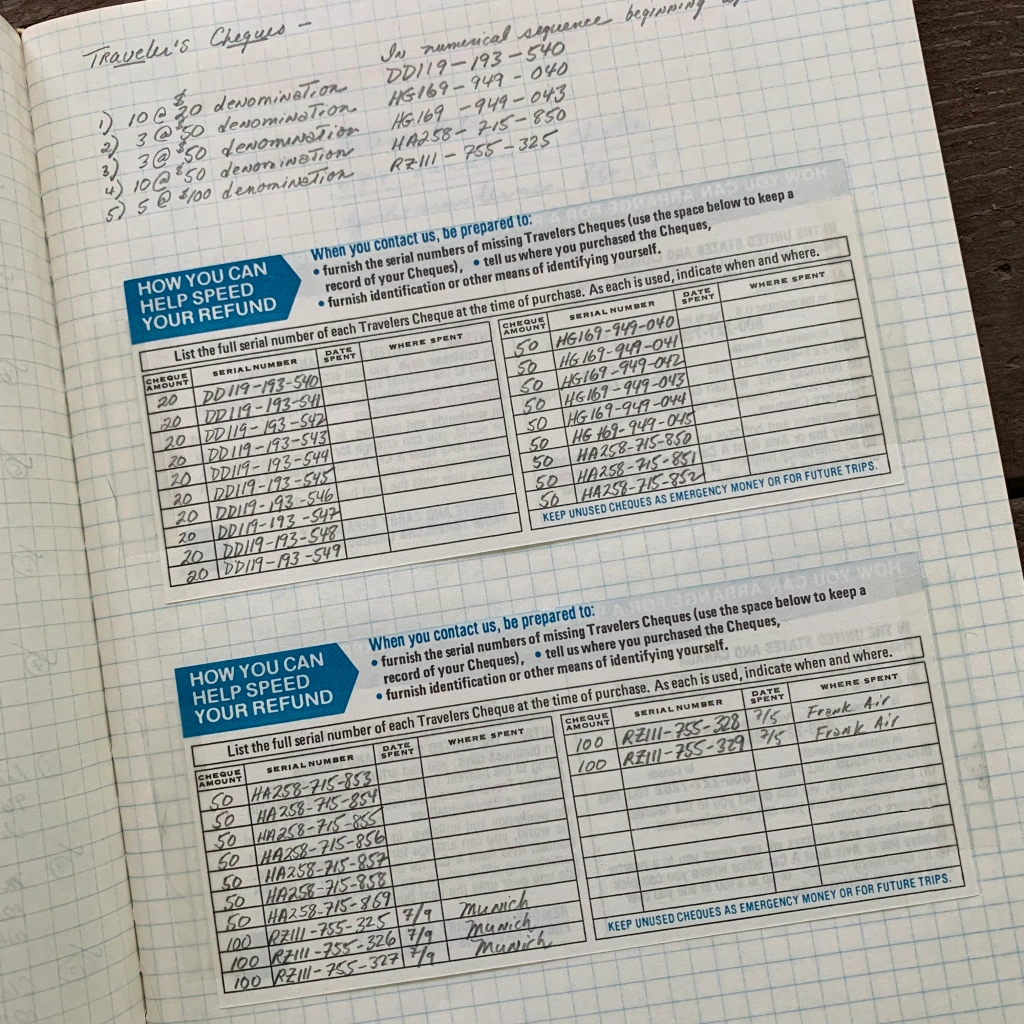 Traveler's Cheques -
In numerical sequence beginning
1) 10 @ $20 denomination DD119-193-540
2) 3 @ $50 denomination HG169-949-040
3) 3 @ $50 denomination HG169-949-043
4) 10 @ $50 denomination HA258-715-850
5) 5 @ $100 denomination RZ111-755-325
HOW YOU CAN
HELP SPEED
YOUR REFUND
When you contact us, be prepared to:
• furnish the serial numbers of missing Travelers Cheques (use the space below to keep a
record of your Cheques), • tell us where you purchased the Cheques,
• furnish identification or other means of identifying yourself.
List the full serial number of each Travelers Cheque at the time of purchase. As each is used, indicate when and where.
CHEQUE AMOUNT SERIAL NUMBER DATE SPENT WHERE SPENT
20 DD119-193-540
20 DD119-193-541
20 DD119-193-542
20 DD119-193-543
20 DD119-193-544
20 DD119-193-545
20 DD119-193-546
20 DD119-193-547
20 DD119-193-548
20 DD119-193-549
CHEQUE AMOUNT SERIAL NUMBER DATE SPENT WHERE SPENT
50 HG169-949-040
50 HG169-949-041
50 HG169-949-042
50 HG169-949-043
50 HG169-949-044
50 HG169-949-045
50 HA258-715-850
50 HA258-715-851
50 HA258-715-852
KEEP UNUSED CHEQUES AS EMERGENCY MONEY OR FOR FUTURE TRIPS.
HOW YOU CAN
HELP SPEED
YOUR REFUND
When you contact us, be prepared to:
• furnish the serial numbers of missing Travelers Cheques (use the space below to keep a
record of your Cheques), • tell us where you purchased the Cheques,
• furnish identification or other means of identifying yourself.
List the full serial number of each Travelers Cheque at the time of purchase. As each is used, indicate when and where.
CHEQUE AMOUNT SERIAL NUMBER DATE SPENT WHERE SPENT
50 HA258-715-853
50 HA258-715-854
50 HA258-715-855
50 HA258-715-856
50 HA258-715-857
50 HA258-715-858
50 HA258-715-869
100 RZ111-755-325 7/9 Munich
100 RZ111-755-326 7/9 Munich
100 RZ111-755-327 7/9 Munich
CHEQUE AMOUNT SERIAL NUMBER DATE SPENT WHERE SPENT
100 RZ111-755-328 7/5 Frank Air
100 RZ111-755-329 7/5 Frank Air
KEEP UNUSED CHEQUES AS EMERGENCY MONEY OR FOR FUTURE TRIPS.